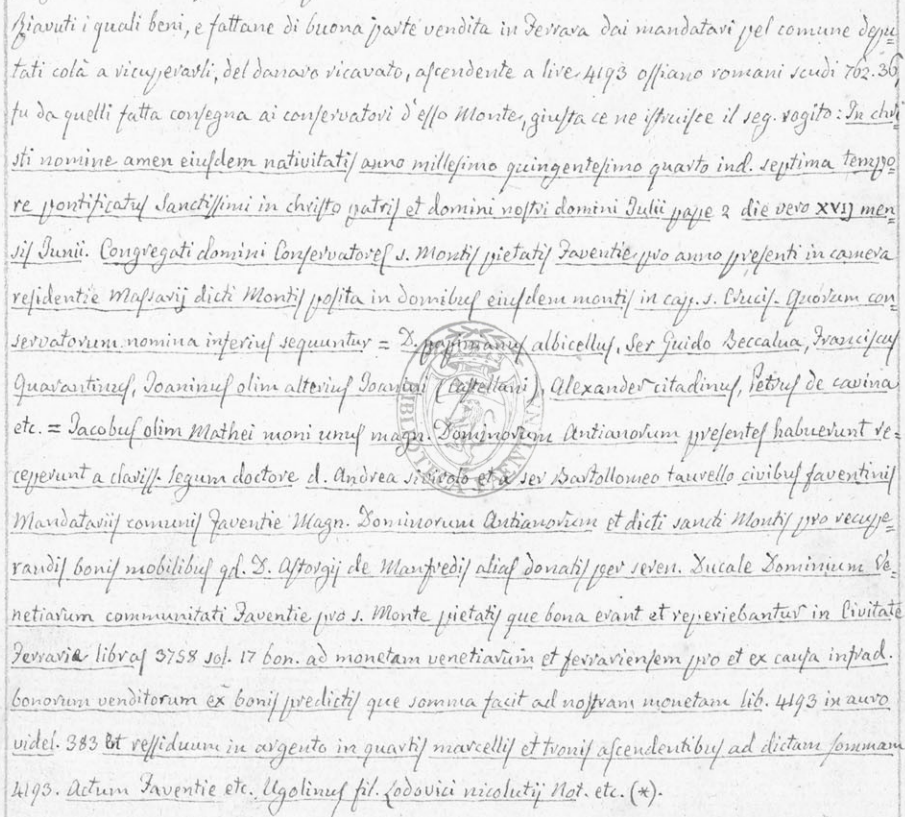 Riavuti i quali beni, e fattane di buona parte vendita in Ferrara dai mandatari pel comune depu=
tati colà a ricuperarli, del danaro ricavato, ascendente a lire 4193 ossiano romani scudi 762.36,
fu da quelli fatta consegna ai conservatori d'esso Monte, giusta ce ne istruisce il seg. rogito: In chri
sti nomine amen eiusdem nativitatis anno millesimo quingentesimo quarto ind. septima tempo=
re pontificatus Sanctissimi in christo patris et domini nostri domini Julii pape 2 die vero XVIJ men=
sis Junii. Congregati domini Conservatores s. Montis pietatis Faventie pro anno presenti in camera
residentie Massarij dicti Montis posita in domibus eiusdem montis in cap. s. Crucis. Quorum con
servatorum nomina inferius sequuntur = D. papinianus albicellus, Ser Guido Beccalua, Franciscus
Quarantinus, Joaninus olim alterius Joanini (Castellani), Alexander citadinus, Petrus de cavina
etc. = Jacobus olim Mathei moni unus magn. Dominorum Antianorum presentes habuerunt re=
ceperunt a clariss. legum doctore d. Andrea et a ser Bartollomeo taurello civibus faventinis
Mandatariis comunis Faventie Magn. Dominorum Antianorum et dicti sancti Montis pro recupe=
randis bonis mobilibus qd. D. Astorgij de Manfredis alias donatis per seren. Ducale Dominium Ve=
netiarum communitati Faventie pro s. Monte pietatis que bona erant et reperiebantur in Civitate
Ferrarie libras 3758 sol. 17 bon. ad monetam venetiarum et ferrariensem pro et ex causa infrad.
bonorum venditorum ex bonis predictis que somma facit ad nostram monetam lib. 4193 in auro
videl. 383 et ressiduum in argento in quartis marcellis et tronis ascendentibus ad dictam sommam
4193. Actum Faventie etc. Ugolinus fil. Lodovici nicolutij Not. etc. (*).